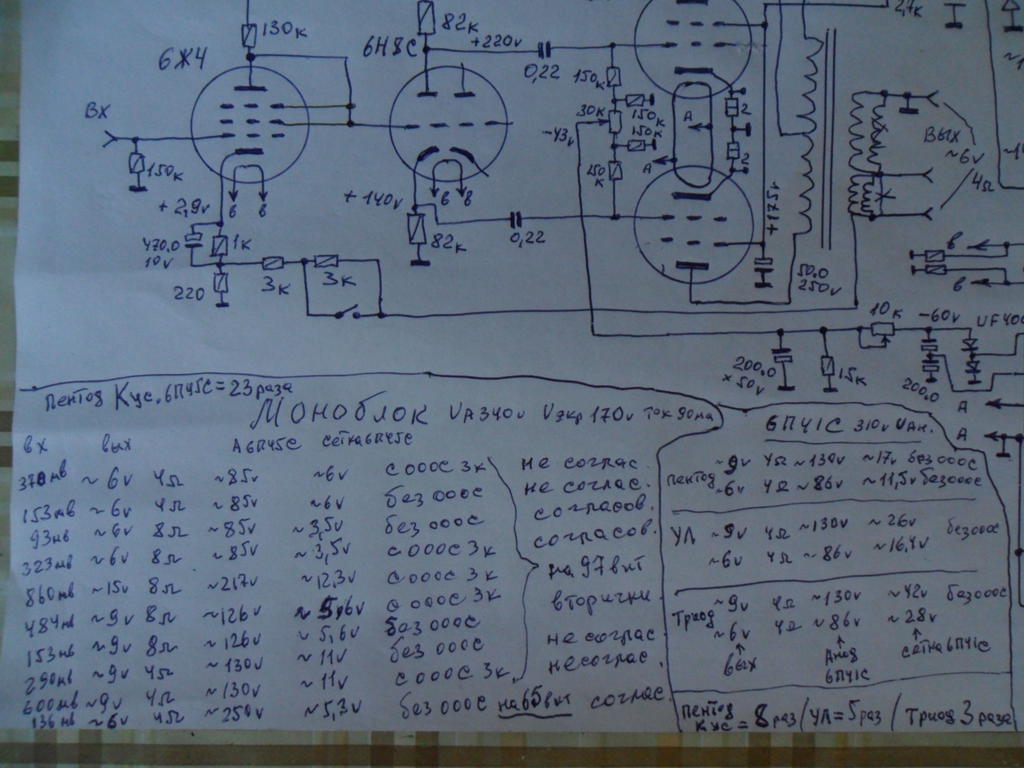 130к
82к
2,7к
6Ж4
6Н8С
+220v
0,22
150к
30к
150к
150к
-43v
150к
А
А
2
2
ВХ
150к
+2,9v
в
в
+140v
в
в
470.0
10v
1к
220
3к
3к
82к
0,22
+175v
50.0
250v
ВЫХ
~6v
4Ω
в
в
10к
-60v
UF400
200.0
×50v
15к
200.0
А
А
Пентод Кус. 6П45С = 23 раза
Моноблок UА340v Uэкр 170v ток 90ма
вх вых А6П45С сетка6П45С
370мв ~6v 4Ω ~85v ~6v с ОООС 3к не соглас.
153мв ~6v 4Ω ~85v ~6v без ОООС не соглас.
93мв ~6v 8Ω ~85v ~3,5v без ОООС согласов.
323мв ~6v 8Ω ~85v ~3,5v с ОООС 3к согласов.
860мв ~15v 8Ω ~217v ~12,3v с ОООС 3к на 97вит
484мв ~9v 8Ω ~126v ~5,6v с ОООС 3к вторички
153мв ~9v 8Ω ~126v ~5,6v без ОООС
290мв ~9v 4Ω ~130v ~11v без ОООС не соглас.
600мв ~9v 4Ω ~130v ~11v с ОООС 3к, несоглас.
136мв ~6v 4Ω ~250v ~5,3v без ОООС на 65вит соглас.
6П41С 310v UАн.
Пентод ~9v 4Ω ~130v ~17v без ОООС
~6v 4Ω ~86v ~11,5v без ОООС
УЛ ~9v 4Ω ~130v ~26v без ОООС
~6v 4Ω ~86v ~16,4v
Триод ~9v 4Ω ~130v ~42v без ОООС
~6v 4Ω ~86v ~28v
вых Анод 6П41С сетка 6П41С
Пентод Кус = 8 раз / УЛ = 5 раз / Триод 3 раза